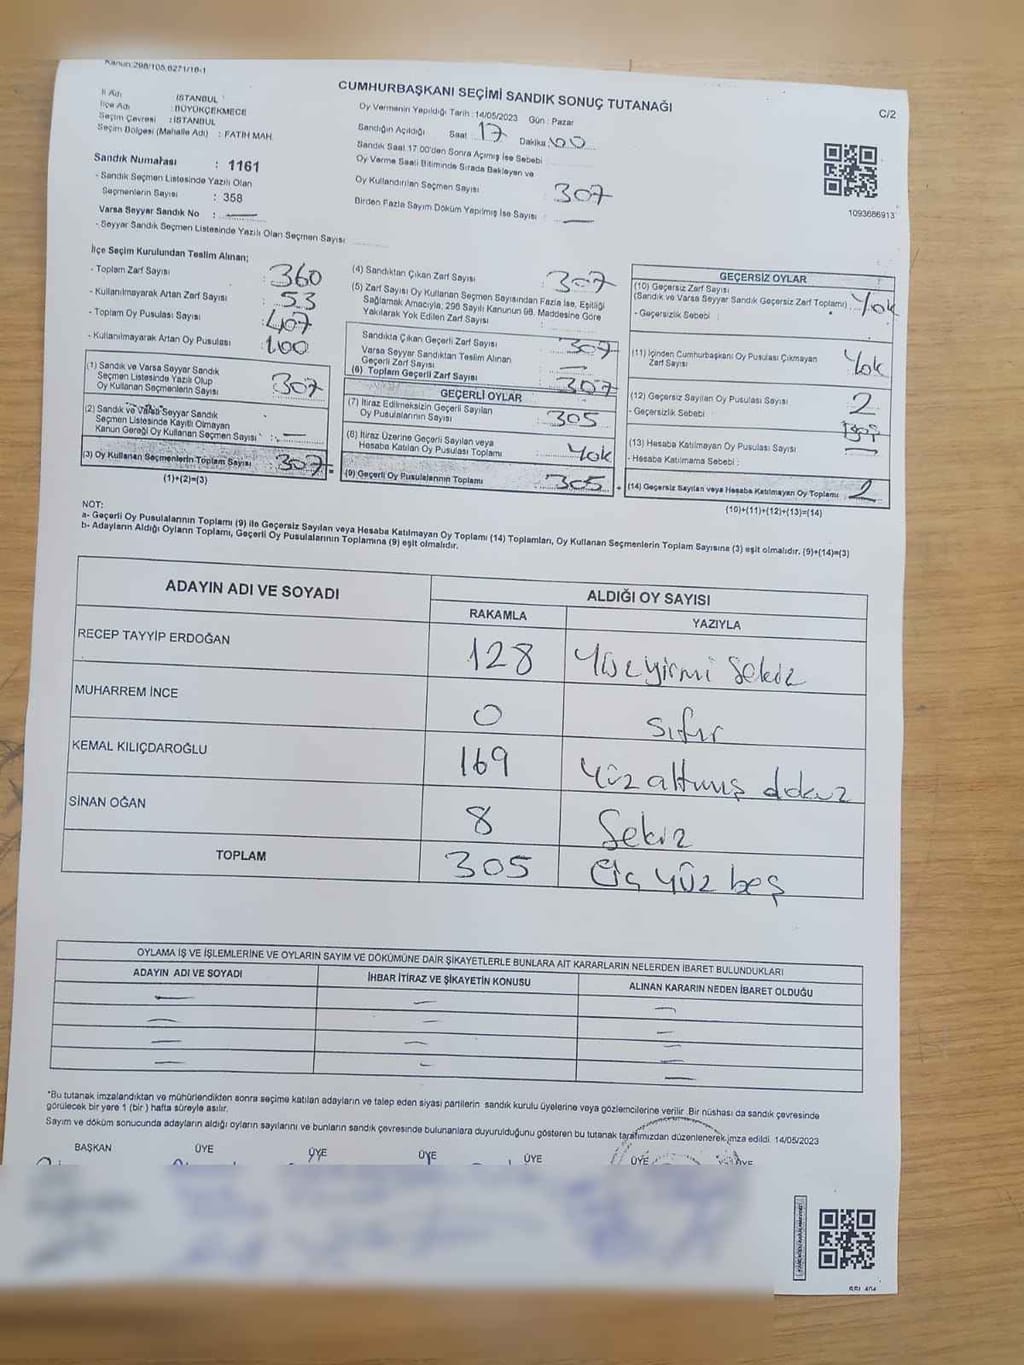 Kanun:298/105,6271/16-1
CUMHURBAŞKANI SEÇİMİ SANDIK SONUÇ TUTANAĞI
C/2
İl Adı : İSTANBUL
İlçe Adı : BÜYÜKÇEKMECE
Seçim Çevresi : İSTANBUL
Seçim Bölgesi (Mahalle Adı) : FATİH MAH.
Oy Vermenin Yapıldığı Tarih : 14/05/2023 Gün : Pazar
Sandığın Açıldığı Saat 17 Dakika 00
Sandık Saat 17.00'den Sonra Açımış İse Sebebi
Oy Verme Saati Bitiminde Sırada Bekleyen ve
Oy Kullandırılan Seçmen Sayısı 307
Birden Fazla Sayım Döküm Yapılmış İse Sayısı : —
1093686913
Sandık Numarası : 1161
- Sandık Seçmen Listesinde Yazılı Olan
Seçmenlerin Sayısı : 358
Varsa Seyyar Sandık No : —
- Seyyar Sandık Seçmen Listesinde Yazılı Olan Seçmen Sayısı
İlçe Seçim Kurulundan Teslim Alınan;
- Toplam Zarf Sayısı : 360
- Kullanılmayarak Artan Zarf Sayısı : 53
- Toplam Oy Pusulası Sayısı : 407
- Kullanılmayarak Artan Oy Pusulası : 100
(1) Sandık ve Varsa Seyyar Sandık
Seçmen Listesinde Yazılı Olup
Oy Kullanan Seçmenlerin Sayısı : 307
(2) Sandık ve Varsa Seyyar Sandık
Seçmen Listesinde Kayıtlı Olmayan
Kanun Gereği Oy Kullanan Seçmen Sayısı : —
(3) Oy Kullanan Seçmenlerin Toplam Sayısı : 307
(1)+(2)=(3)
(4) Sandıktan Çıkan Zarf Sayısı : 307
(5) Zarf Sayısı Oy Kullanan Seçmen Sayısından Fazla İse, Eşitliği
Sağlamak Amacıyla, 298 Sayılı Kanunun 98. Maddesine Göre
Yakılarak Yok Edilen Zarf Sayısı
Sandıkta Çıkan Geçerli Zarf Sayısı : 307
Varsa Seyyar Sandıktan Teslim Alınan
Geçerli Zarf Sayısı : —
(6) Toplam Geçerli Zarf Sayısı : 307
GEÇERLİ OYLAR
(7) İtiraz Edilmeksizin Geçerli Sayılan
Oy Pusulalarının Sayısı : 305
(8) İtiraz Üzerine Geçerli Sayılan veya
Hesaba Katılan Oy Pusulası Toplamı : Yok
(9) Geçerli Oy Pusulalarının Toplamı : 305
GEÇERSİZ OYLAR
(10) Geçersiz Zarf Sayısı
(Sandık ve Varsa Seyyar Sandık Geçersiz Zarf Toplamı) : Yok
- Geçersizlik Sebebi :
(11) İçinden Cumhurbaşkanı Oy Pusulası Çıkmayan
Zarf Sayısı : Yok
(12) Geçersiz Sayılan Oy Pusulası Sayısı : 2
- Geçersizlik Sebebi :
(13) Hesaba Katılmayan Oy Pusulası Sayısı : —
- Hesaba Katılmama Sebebi :
(14) Geçersiz Sayılan veya Hesaba Katılmayan Oy Toplamı : 2
(10)+(11)+(12)+(13)=(14)
NOT:
a- Geçerli Oy Pusulalarının Toplamı (9) ile Geçersiz Sayılan veya Hesaba Katılmayan Oy Toplamı (14) Toplamları, Oy Kullanan Seçmenlerin Toplam Sayısına (3) eşit olmalıdır. (9)+(14)=(3)
b- Adayların Aldığı Oyların Toplamı, Geçerli Oy Pusulalarının Toplamına (9) eşit olmalıdır.
ADAYIN ADI VE SOYADI ALDIĞI OY SAYISI
RAKAMLA YAZIYLA
RECEP TAYYİP ERDOĞAN 128 Yüzyirmi Sekiz
MUHARREM İNCE 0 Sıfır
KEMAL KILIÇDAROĞLU 169 Yüz altmış dokuz
SİNAN OĞAN 8 Sekiz
TOPLAM 305 Üç yüz beş
OYLAMA İŞ VE İŞLEMLERİNE VE OYLARIN SAYIM VE DÖKÜMÜNE DAİR ŞİKAYETLERLE BUNLARA AİT KARARLARIN NELERDEN İBARET BULUNDUKLARI
ADAYIN ADI VE SOYADI İHBAR İTİRAZ VE ŞİKAYETİN KONUSU ALINAN KARARIN NEDEN İBARET OLDUĞU
— — —
— — —
— — —
— — —
*Bu tutanak imzalandıktan ve mühürlendikten sonra seçime katılan adayların ve talep eden siyasi partilerin sandık kurulu üyelerine veya gözlemcilerine verilir. Bir nüshası da sandık çevresinde
görülecek bir yere 1 (bir) hafta süreyle asılır.
Sayım ve döküm sonucunda adayların aldığı oyların sayılarını ve bunların sandık çevresinde bulunanlara duyurulduğunu gösteren bu tutanak tarafımızdan düzenlenerek imza edildi. 14/05/2023
BAŞKAN ÜYE ÜYE ÜYE ÜYE ÜYE ÜYE